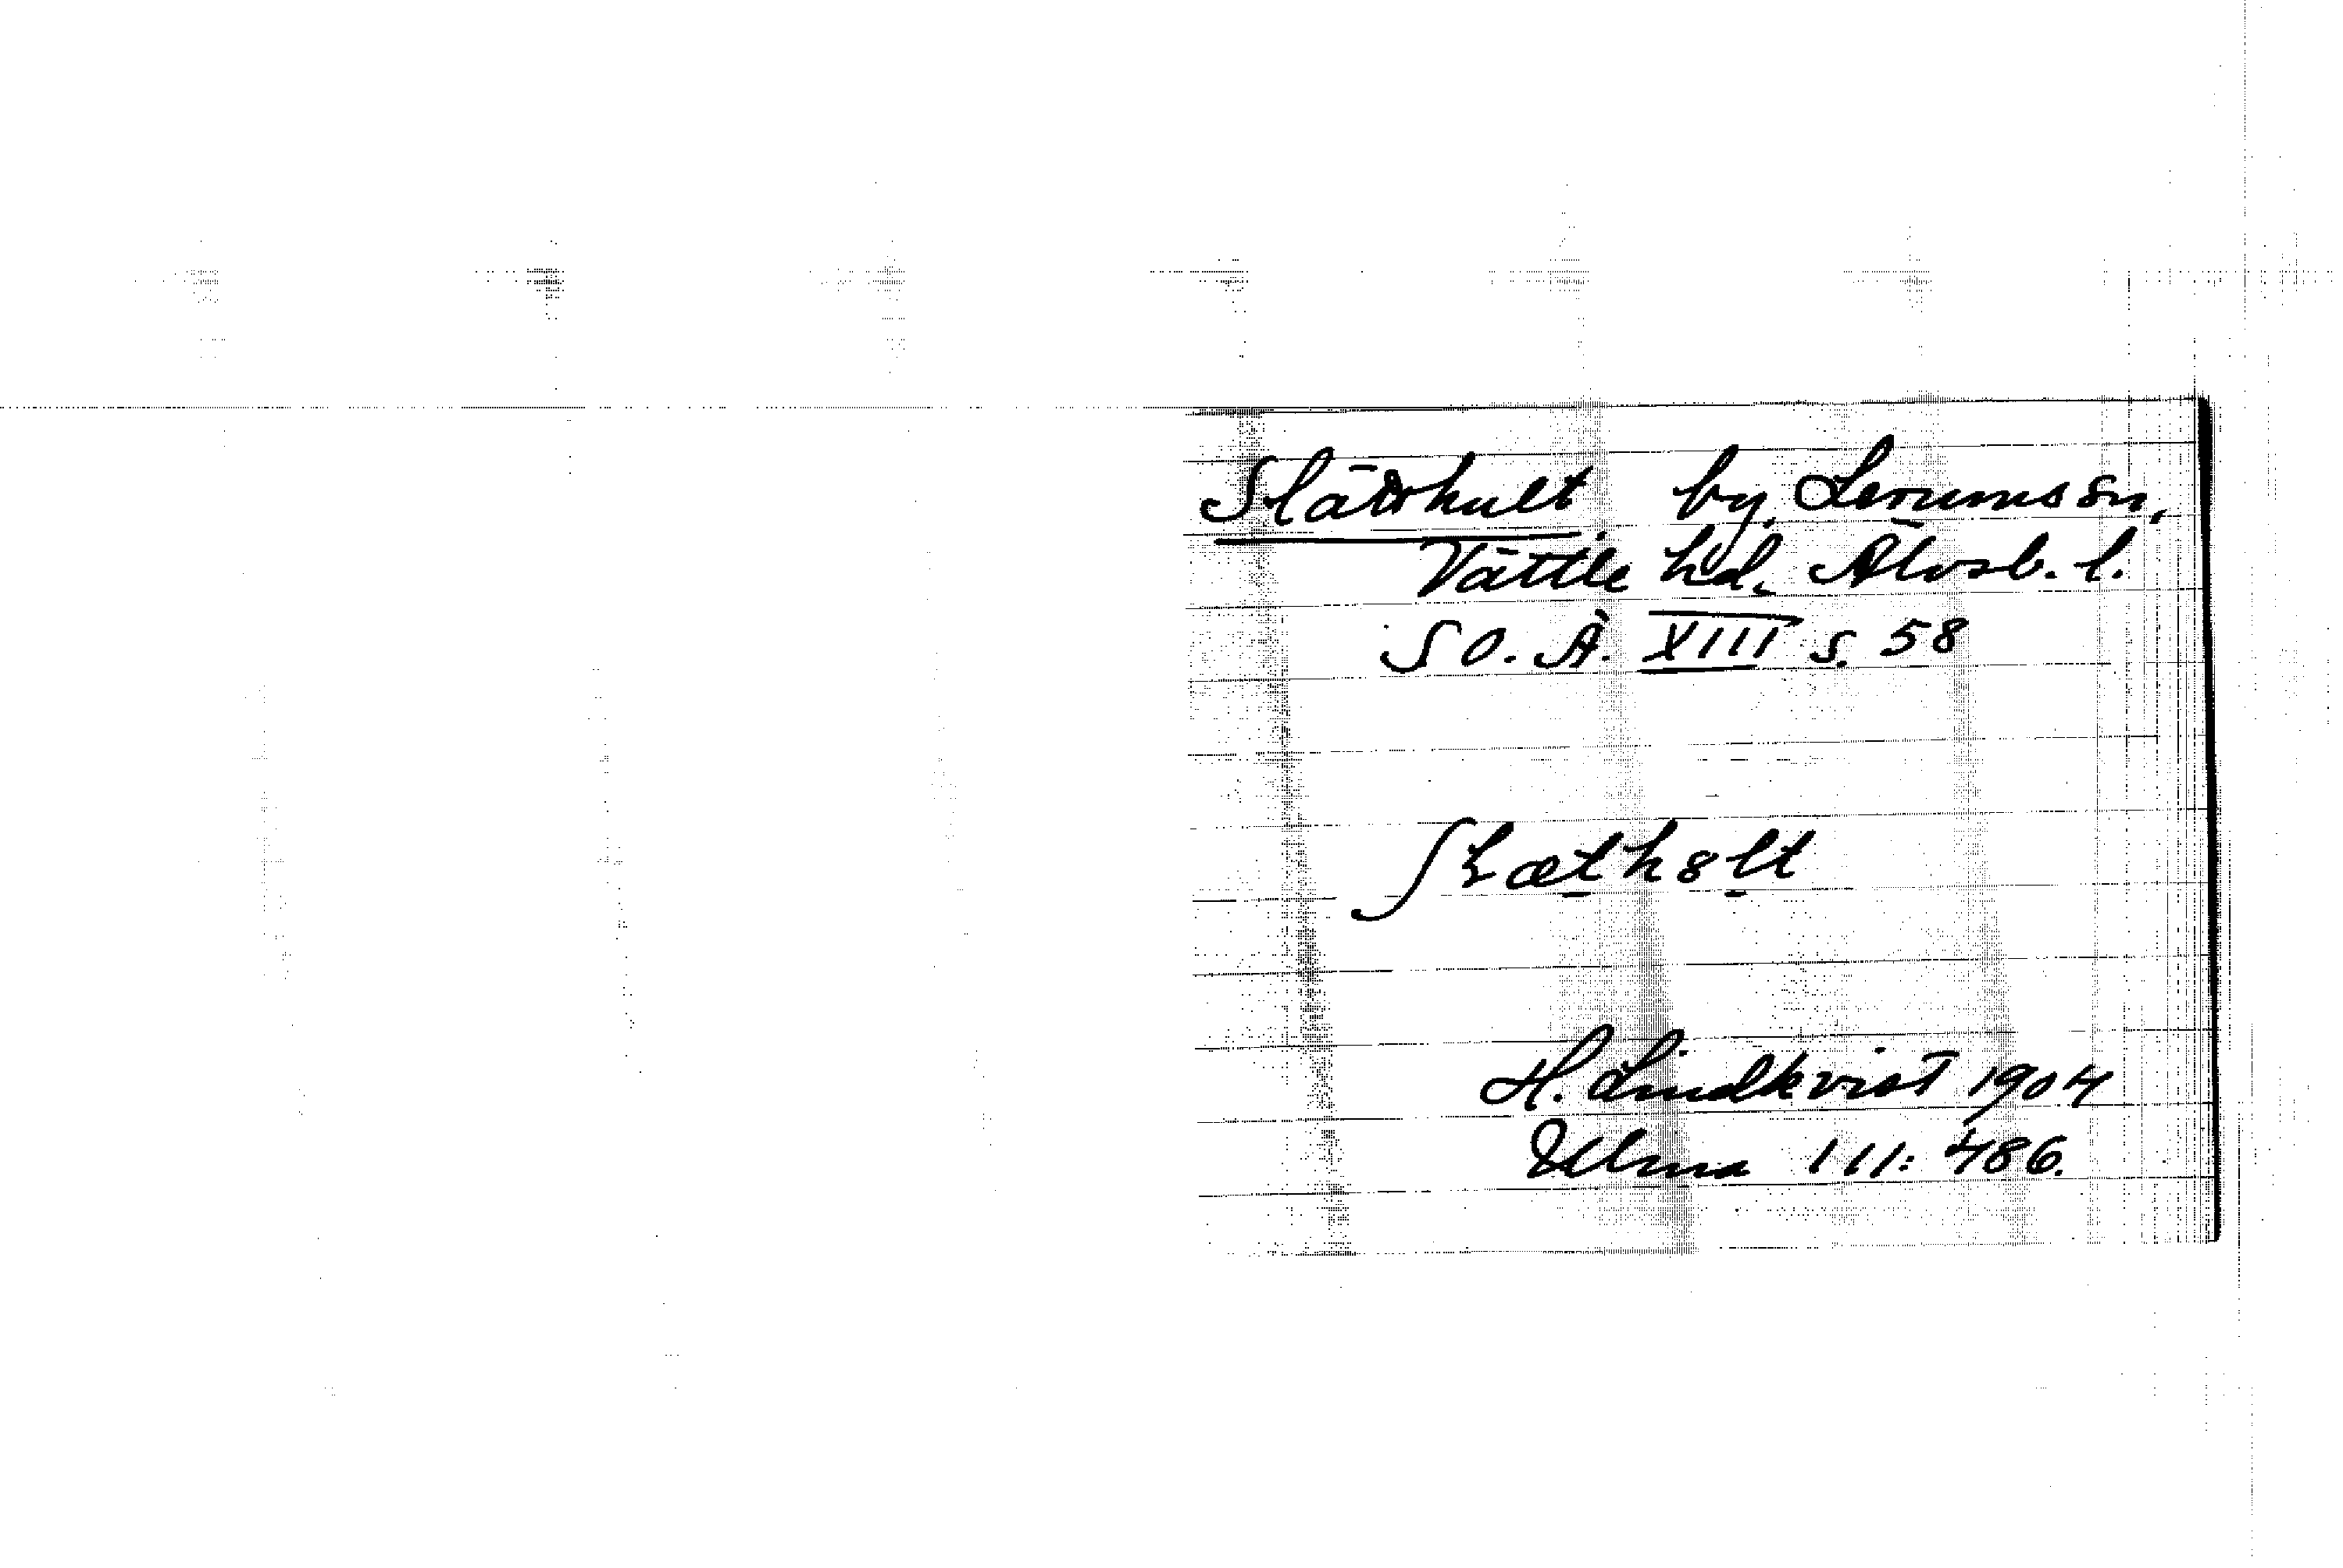 Slätthult by, Lerums sn,
Vättle hd, Älvsb. l.
SO. Ä. XIII s. 58
H. Lindkvist 1904
Ulma 111: 486.